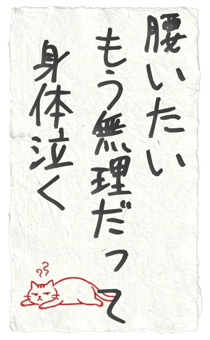 腰いたい
もう無理だって
身体泣く
??